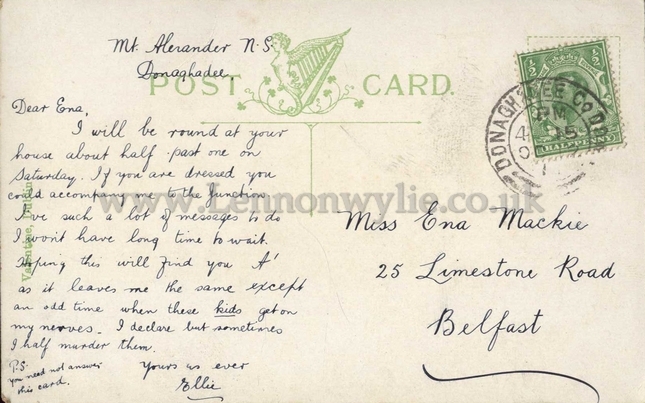 Mt. Alexander N.S.
Donaghadee.
POST CARD.
Dear Ena,
I will be round at your
house about half past one on
Saturday. If you are dressed you
could accompany me to the function
I've such a lot of messages to do
I won't have long time to wait.
Hoping this will find you A'
as it leaves me the same except
an odd time when these kids get on
my nerves. I declare but sometimes
I half murder them.
Yours as ever
Ellie
P.S.
you need not answer
this card.
Valentine, Dublin
½ ½
HALFPENNY
DONAGHADEE CO DOWN
Miss Ena Mackie
25 Limestone Road
Belfast
www.Lennonwylie.co.uk